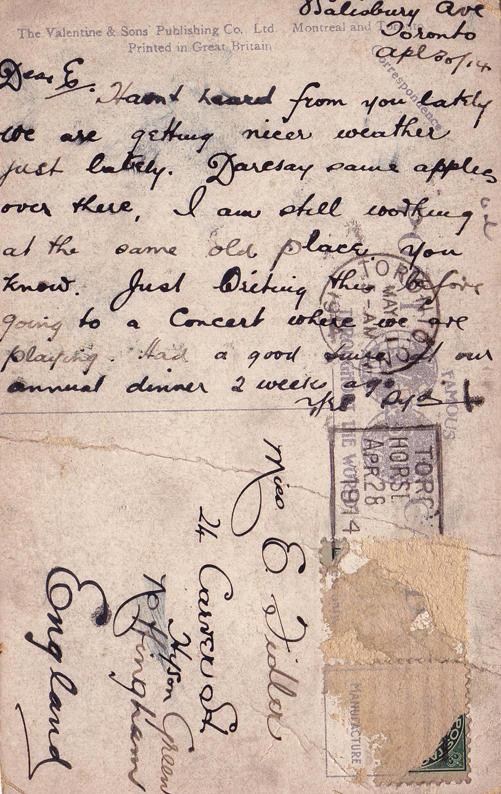 The Valentine & Sons Publishing Co. Ltd. Montreal and Toronto
Printed in Great Britain
Salisbury Ave
Toronto
Apl 30/14
Correspondence
Dear E.
Havnt heard from you lately
we are getting nicer weather
just lately. Daresay same applies
over there, I am still working
at the same old place. You
know. Just writing this before
going to a Concert where we are
playing. Had a good time at our
annual dinner 2 weeks ago.
Yrs
TORONTO
MAY 1
AM
FAMOUS
THE WORLD
TORO
HORS
APR 28
1914
Miss E Fidler
24 Carver St
Hyson Green
Nottingham
England
MANUFACTURE